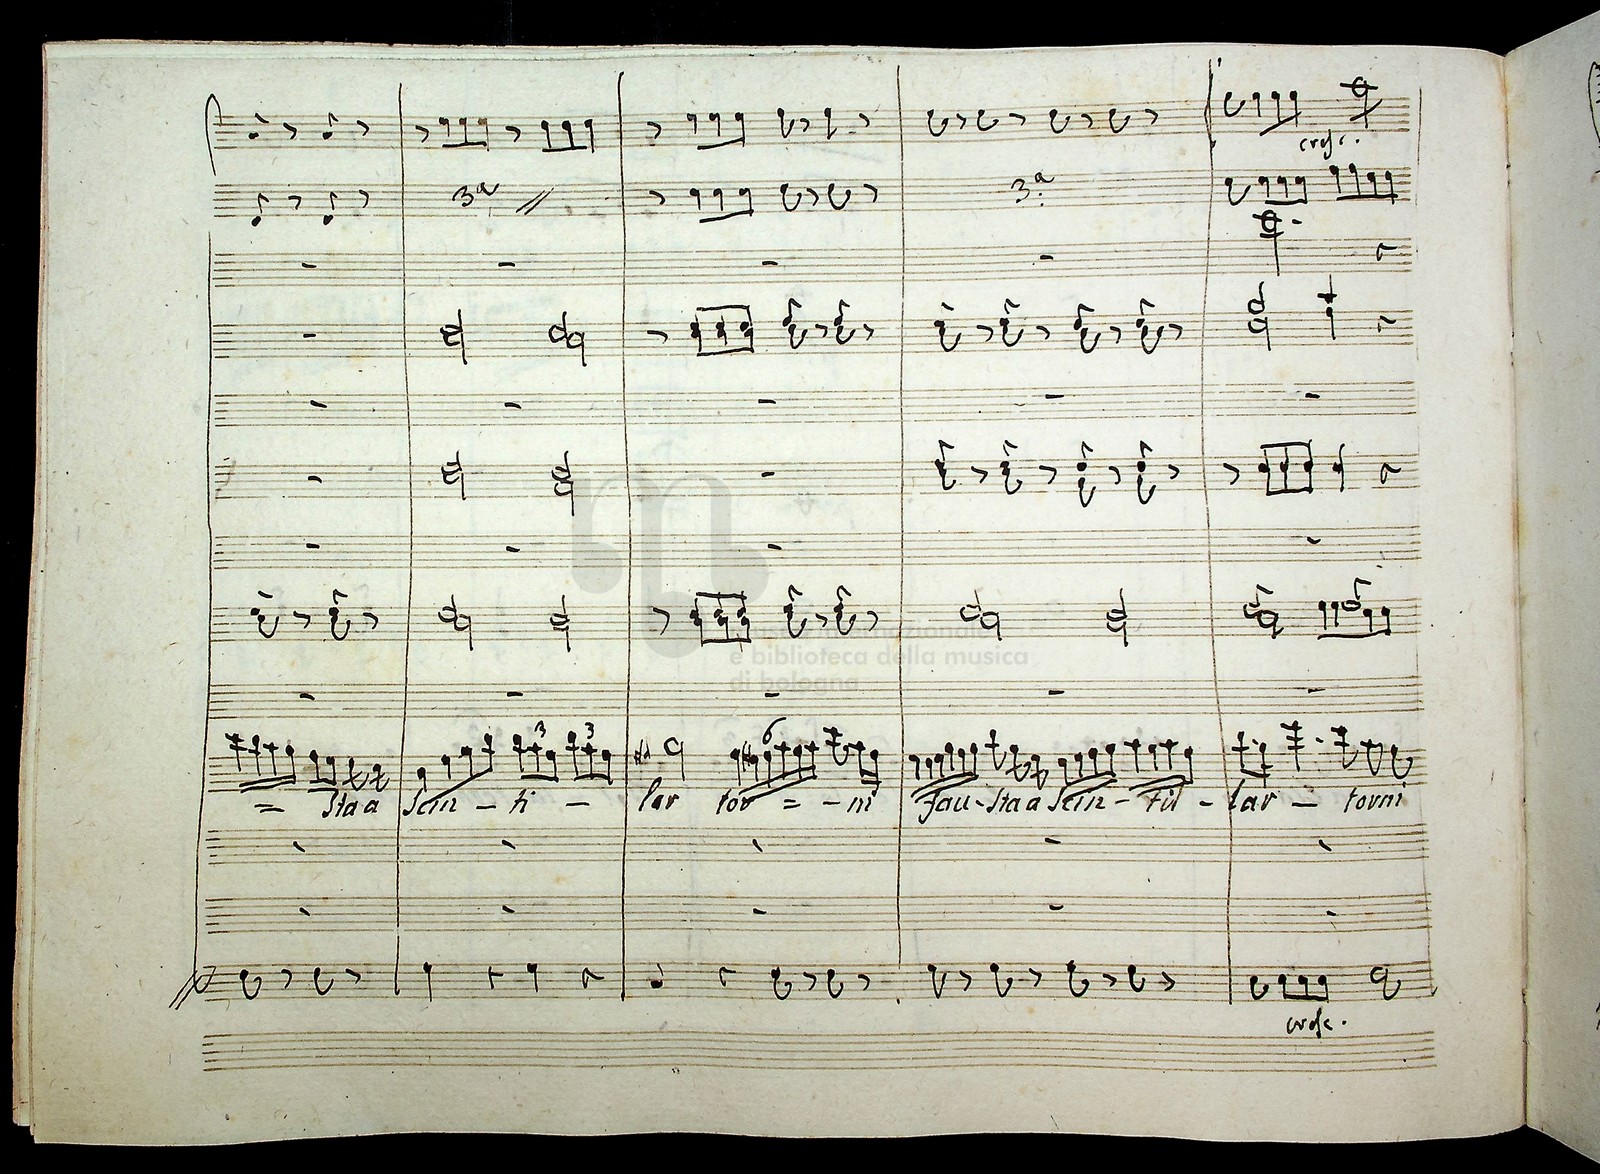 cresc.
3ª
3ª
museo internazionale
e biblioteca della musica
di bologna
3 3 6
= sta a Scin - ti - lar tor = - ni fau - sta a Scin - til - lar - torni
cresc.